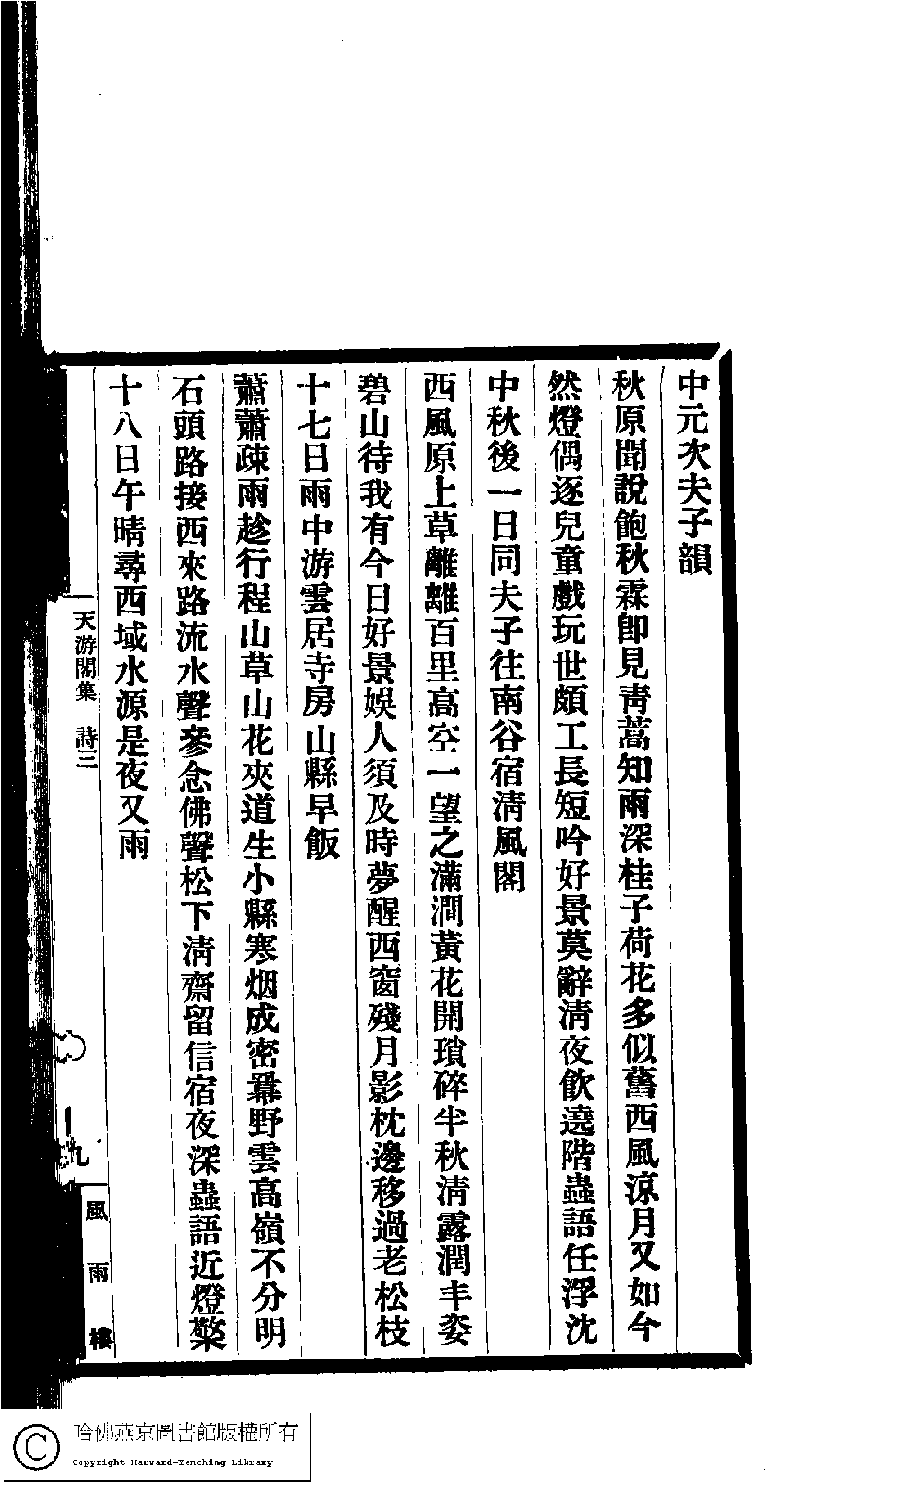 中元次夫子韻
秋原聞說飽秋霖卽見靑蒿知雨深桂子荷花多似舊西風凉月又如今
然燈偶逐兒童戲玩世頗工長短吟好景莫辭淸夜飮遶階蟲語任浮沈
中秋後一日同夫子往南谷宿淸風閣
西風原上草離離百里高空一望之滿澗黃花開瑣碎半秋淸露潤丰姿
碧山待我有今日好景娛人須及時夢醒西窗殘月影枕邊移過老松枝
十七日雨中游雲居寺房山縣早飯
蕭蕭疎雨趁行程山草山花夾道生小縣寒烟成密羃野雲高嶺不分明
石頭路接西來路流水聲參念佛聲松下淸齋留信宿夜深蟲語近燈檠
十八日午晴尋西域水源是夜又雨
天游閣集 詩三
九
風雨樓
哈佛燕京圖書館版權所有
Copyright Harvard-Yenching Library